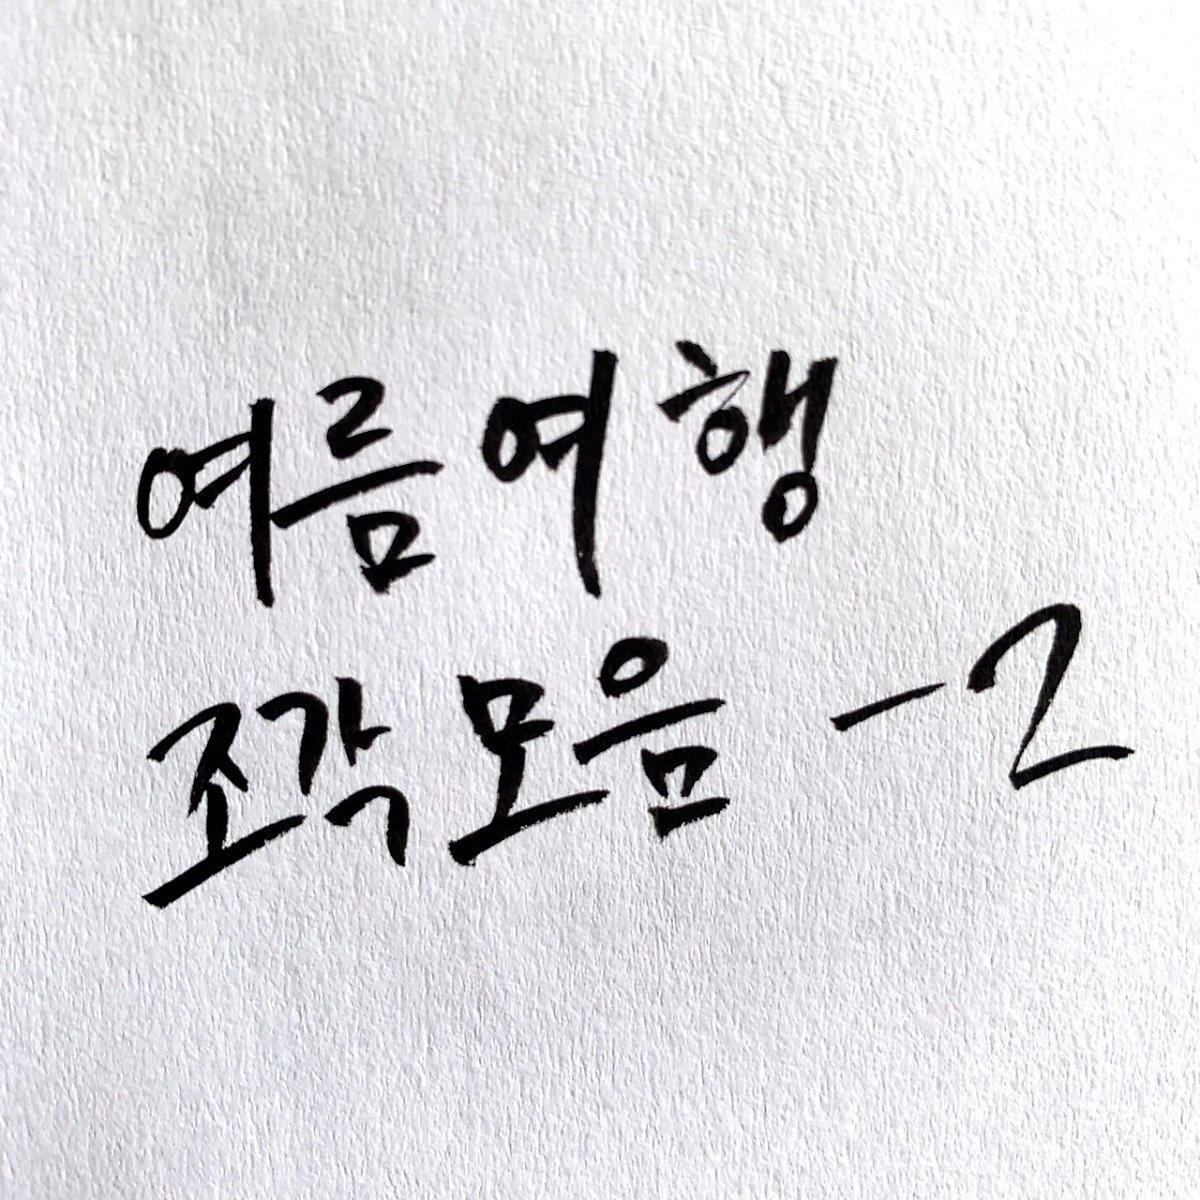 여름 여행
조각 모음 -2